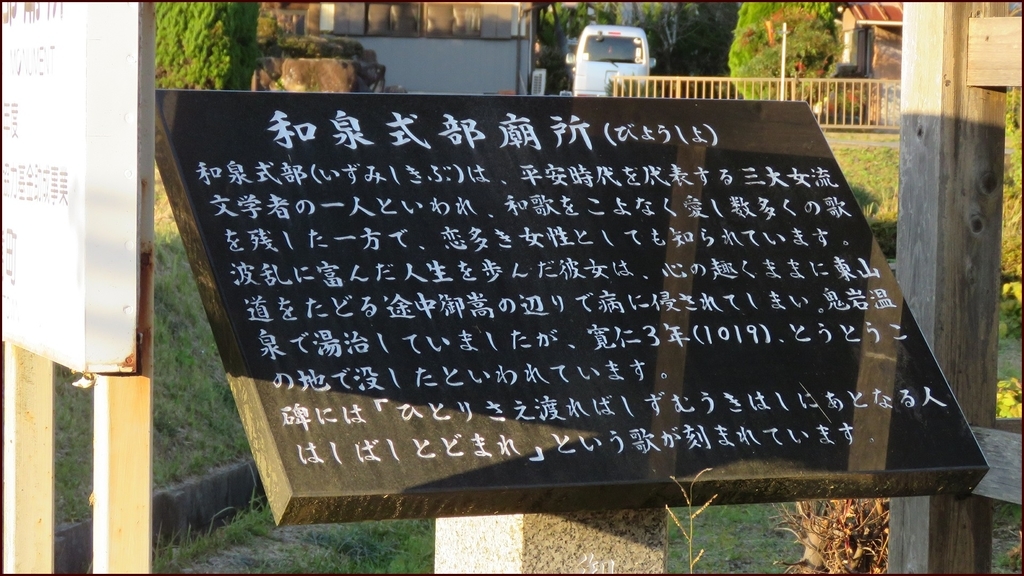 MONUMENT
年度
町
和泉式部廟所(びょうしょ)
和泉式部(いずみしきぶ)は、平安時代を代表する三大女流
文学者の一人といわれ、和歌をこよなく愛し数多くの歌
を残した一方で、恋多き女性としても知られています。
波乱に富んだ人生を歩んだ彼女は、心の趣くままに東山
道をたどる途中御嵩の辺りで病に侵されてしまい。鬼岩温
泉で湯治していましたが、寛仁3年(1019)、とうとうこ
の地で没したといわれています。
碑には「ひとりさえ渡ればしずむうきはしにあとなる人
はしばしとどまれ」という歌が刻まれています。